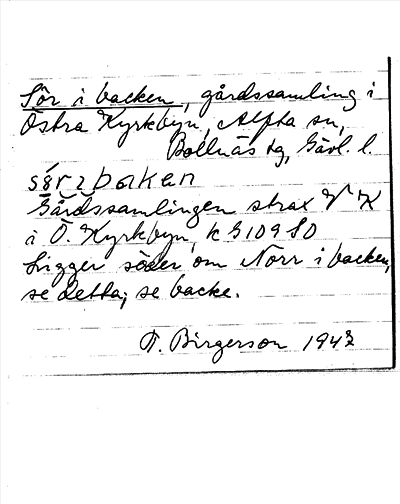 Sör i backen, gårdssamling i
Östra Kyrkbyn, Alfta sn,
Bollnäs tg, Gävl. l.
Gårdssamlingen strax V K
i Ö. Kyrkbyn, k G 109 SO
Ligger söder om Norr i backen,
se detta; se backe.
T. Birgerson 1947